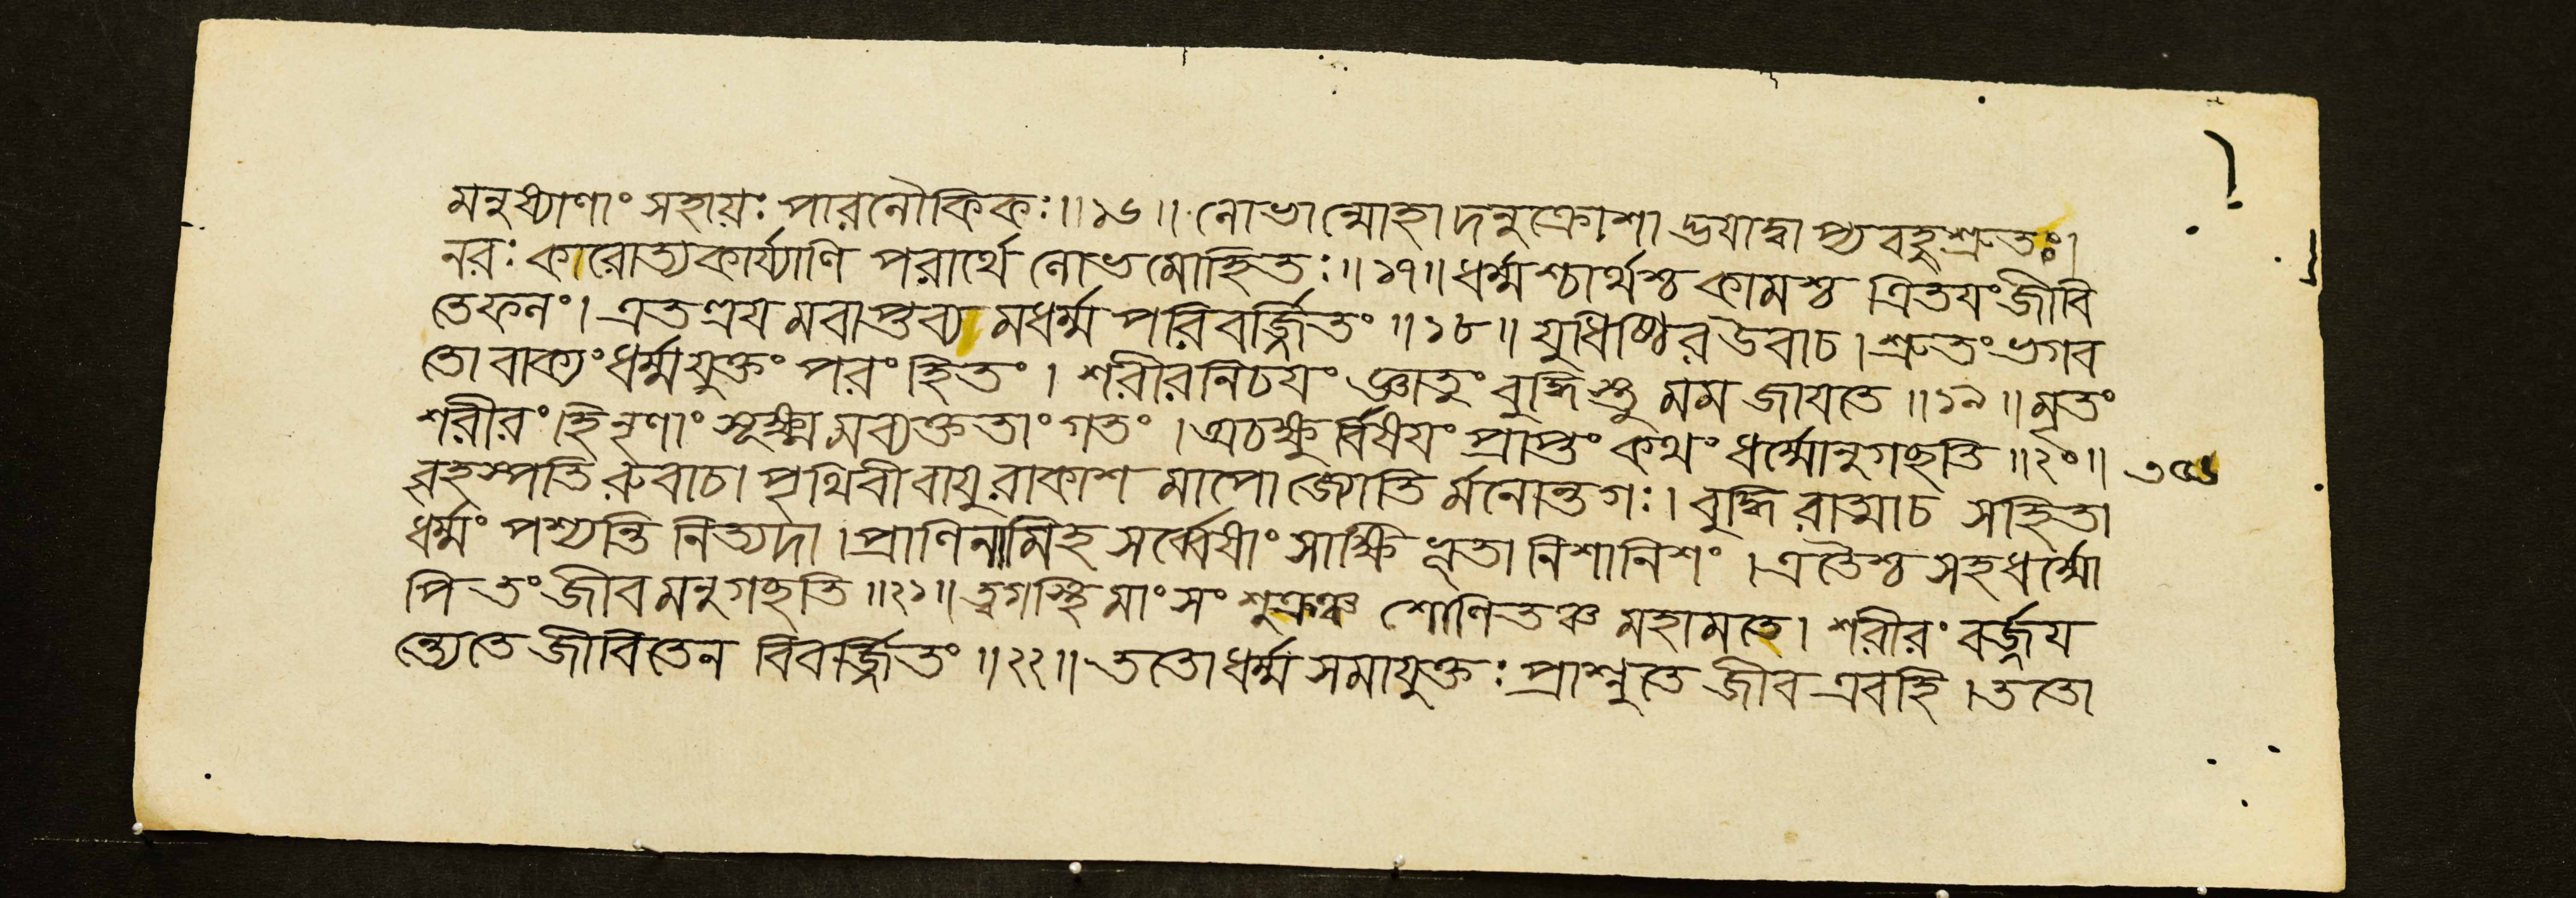 মনুষ্যাণাং সহায়ঃ পারলৌকিকঃ॥১৬॥ লোভান্মোহাদনুক্রোশাদ্ভয়াদ্বাপ্যবহুশ্রুতঃ।
নরঃ কারোত্যকার্য্যাণি পরার্থে লোভমোহিতঃ॥১৭॥ ধর্ম্মশ্চার্থশ্চ কামশ্চ ত্রিতয়ং জীবি
তে ফলং। এতত্ত্রয়মবাপ্তব্যমধর্ম্মপরিবর্জ্জিতং॥১৮॥ যুধিষ্ঠির উবাচ। শ্রুতং ভগব
তো বাক্যং ধর্ম্মযুক্তং পরং হিতং। শরীরনিচয়ং জ্ঞাতুং বুদ্ধিস্তু মম জায়তে॥১৯॥ মৃতং
শরীরং হি নৃণাং সূক্ষ্মমব্যক্ততাং গতং। অচক্ষুর্ব্বিষয়ং প্রাপ্তং কথং ধর্ম্মোনুগচ্ছতি॥২০॥
বৃহস্পতিরুবাচ। পৃথিবী বায়ুরাকাশমাপো জ্যোতির্মনোন্তগঃ। বুদ্ধিরাত্মা চ সহিতা
ধর্ম্মং পশ্যন্তি নিত্যদা। প্রাণিনামিহ সর্ব্বেষাং সাক্ষিভূতা নিশানিশং। এতৈশ্চ সহ ধর্ম্মো
পি তং জীবমনুগচ্ছতি॥২১॥ ত্বগস্থিমাংসং শুক্রঞ্চ শোণিতঞ্চ মহামতে। শরীরং বর্জ্জয়
ন্ত্যেতে জীবিতেন বিবর্জ্জিতং॥২২॥ ততো ধর্ম্মসমাযুক্তঃ প্রাপ্নুতে জীব এব হি। ততো